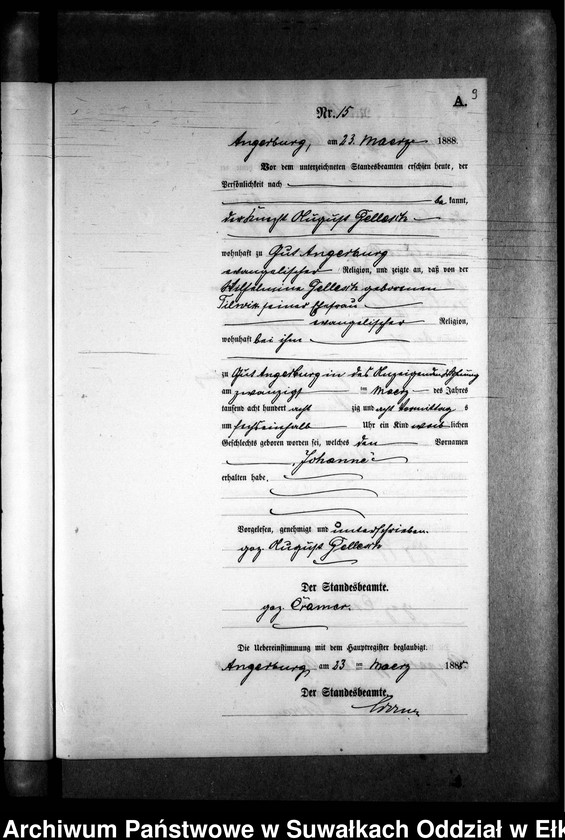 A.
9
Nr. 15
Angerburg, am 23. Maerz 1888.
Vor dem unterzeichneten Standesbeamten erschien heute, der
Persönlichkeit nach
be kannt,
der Knecht August Gellesch
wohnhaft zu Gut Angerburg
evangelischer Religion, und zeigte an, daß von der
Wilhelmine Gellesch geborenen
seiner Ehefrau
evangelischer Religion,
wohnhaft bei ihm
zu Gut Angerburg in des Anzeigenden Wohnung
am zwanzigst ten Maerz des Jahres
tausend acht hundert acht zig und acht Vormittag s
um sechseinhalb Uhr ein Kind weib lichen
Geschlechts geboren worden sei, welches den Vornamen
„Johanne“
erhalten habe.
Vorgelesen, genehmigt und unterschrieben.
gez. August Gellesch
Der Standesbeamte.
gez. Cramer.
Die Uebereinstimmung mit dem Hauptregister beglaubigt.
Angerburg, am 23 ten Maerz 1888.
Der Standesbeamte.
Archiwum Państwowe w Suwałkach Oddział w Ełk